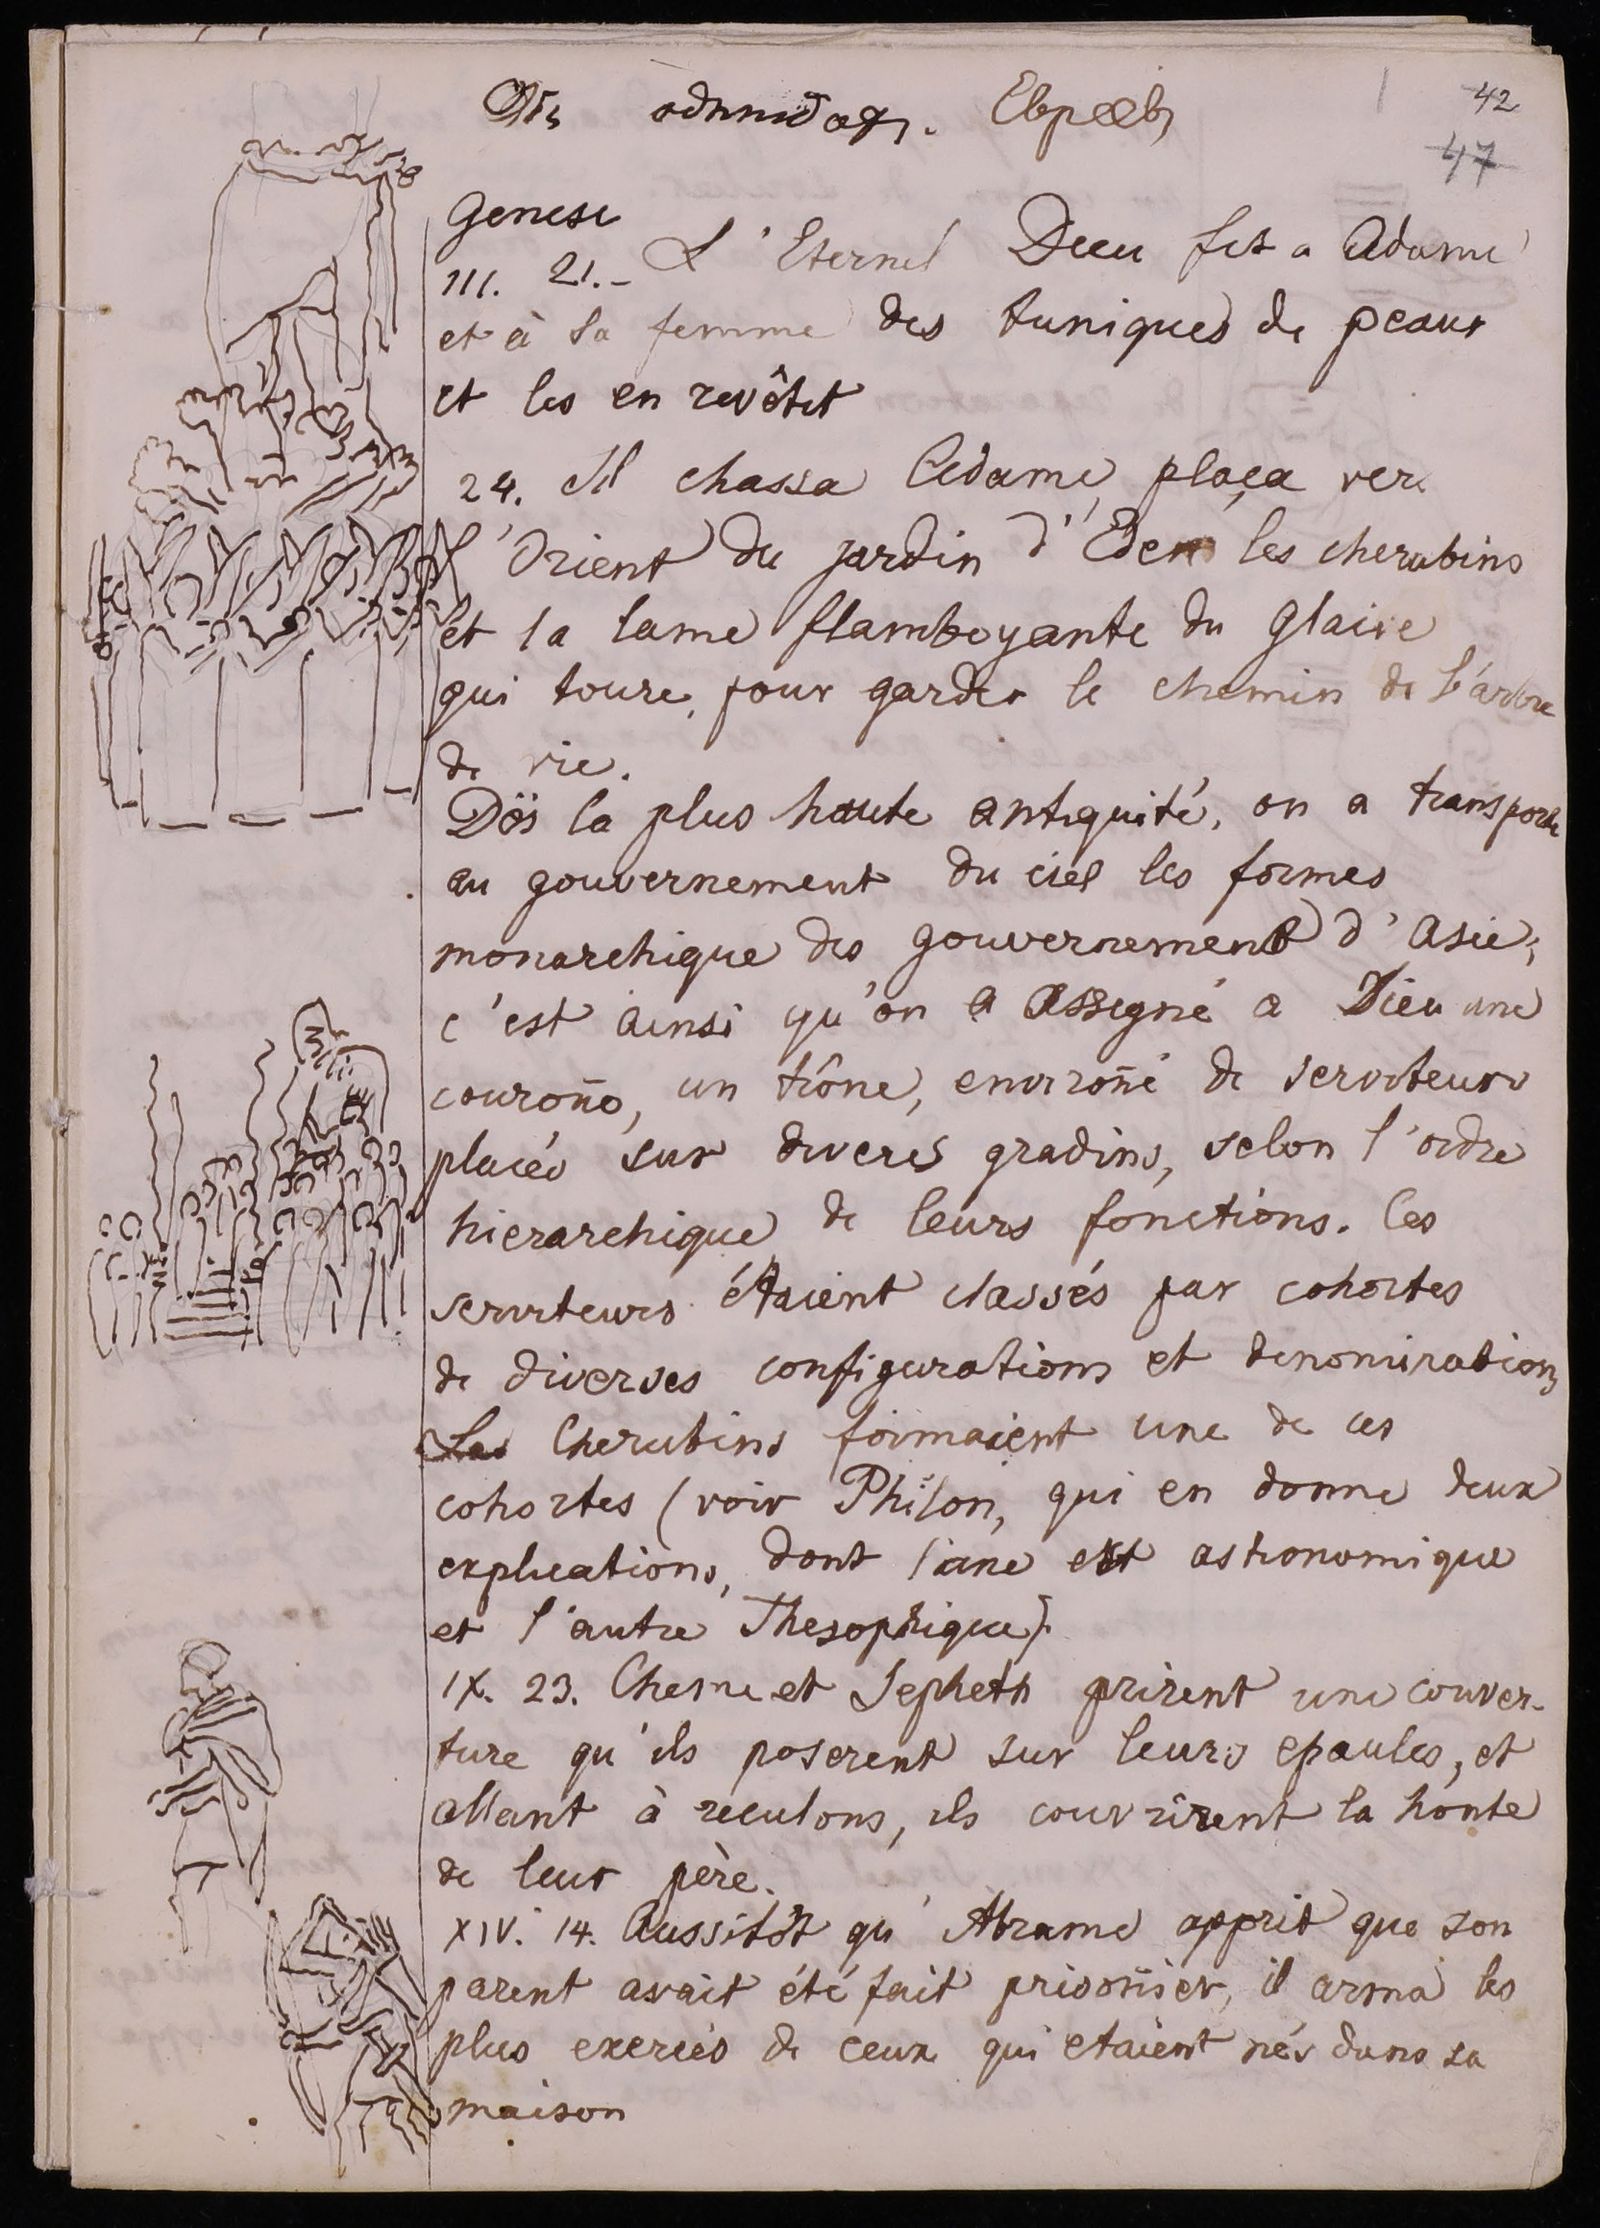 Объ одеждахъ. Евреевъ
42
47
Genese
III. 21. - L'Eternel Dieu fit a Adame
et à sa femme des tuniques de peaux
et les en revêtit
24. Il chassa Adame, plaça vers
l'Orient du jardin d'Eden les cherubins
et la lame flamboyante du glaive
qui toure, pour garder le chemin de l'arbre
de vie.
Dès la plus haute antiquité, on a transporté
au gouvernement du ciel les formes
monarchique des gouvernement d'Asie;
c'est ainsi qu'on a assigné a Dieu une
couron̄e, un trône, environ̄é de serviteurs
placés sur divers gradins, selon l'ordre
hierarchique de leurs fonctions. Ces
serviteurs étaient classés par cohortes
de diverses configurations et denominations
Les Cherubins formaient une de ces
cohortes (voir Philon, qui en donne deux
explications, dont l'une est astronomique
et l'autre Thesophique).
IX. 23. Cheme et Jepheth prirent une couver-
ture qu'ils poserent sur leurs epaules, et
allant à reculons, ils couvrirent la honte
de leur père.
XIV. 14. Aussitôt qu'Abrame apprit que son
parent avait été fait prison̄ier, il arma les
plus exercés de ceux qui etaient nés dans sa
maison